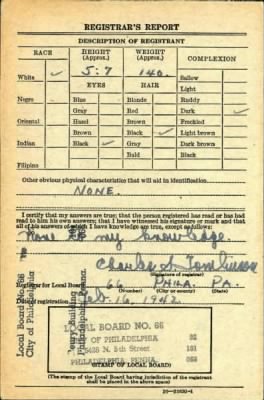 REGISTRAR'S REPORT
DESCRIPTION OF REGISTRANT
RACE HEIGHT (Approx.) WEIGHT (Approx.) COMPLEXION
White ✓ 5:7 140. Sallow
EYES HAIR Light
Negro Blue Blonde Ruddy
Gray Red Dark ✓
Oriental Hazel Brown Freckled
Brown Black ✓ Light brown
Indian Black ✓ Gray Dark brown
Bald Black
Filipino
Other obvious physical characteristics that will aid in identification
NONE.
I certify that my answers are true; that the person registered has read or has had
read to him his own answers; that I have witnessed his signature or mark and that
all of his answers of which I have knowledge are true, except as follows:
None to my knowledge.
Charles A. Tomlinson
(Signature of registrar)
Registrar for Local Board 66 PHILA. PA.
(Number) (City or county) (State)
Date of registration Feb. 16, 1942
Local Board No. 66
City of Philadelphia
LOCAL BOARD NO. 66
CITY OF PHILADELPHIA 32
5425 N. 5th Street 101
PHILADELPHIA, PENNA.
(STAMP OF LOCAL BOARD)
(The stamp of the Local Board having jurisdiction of the registrant
shall be placed in the above space)